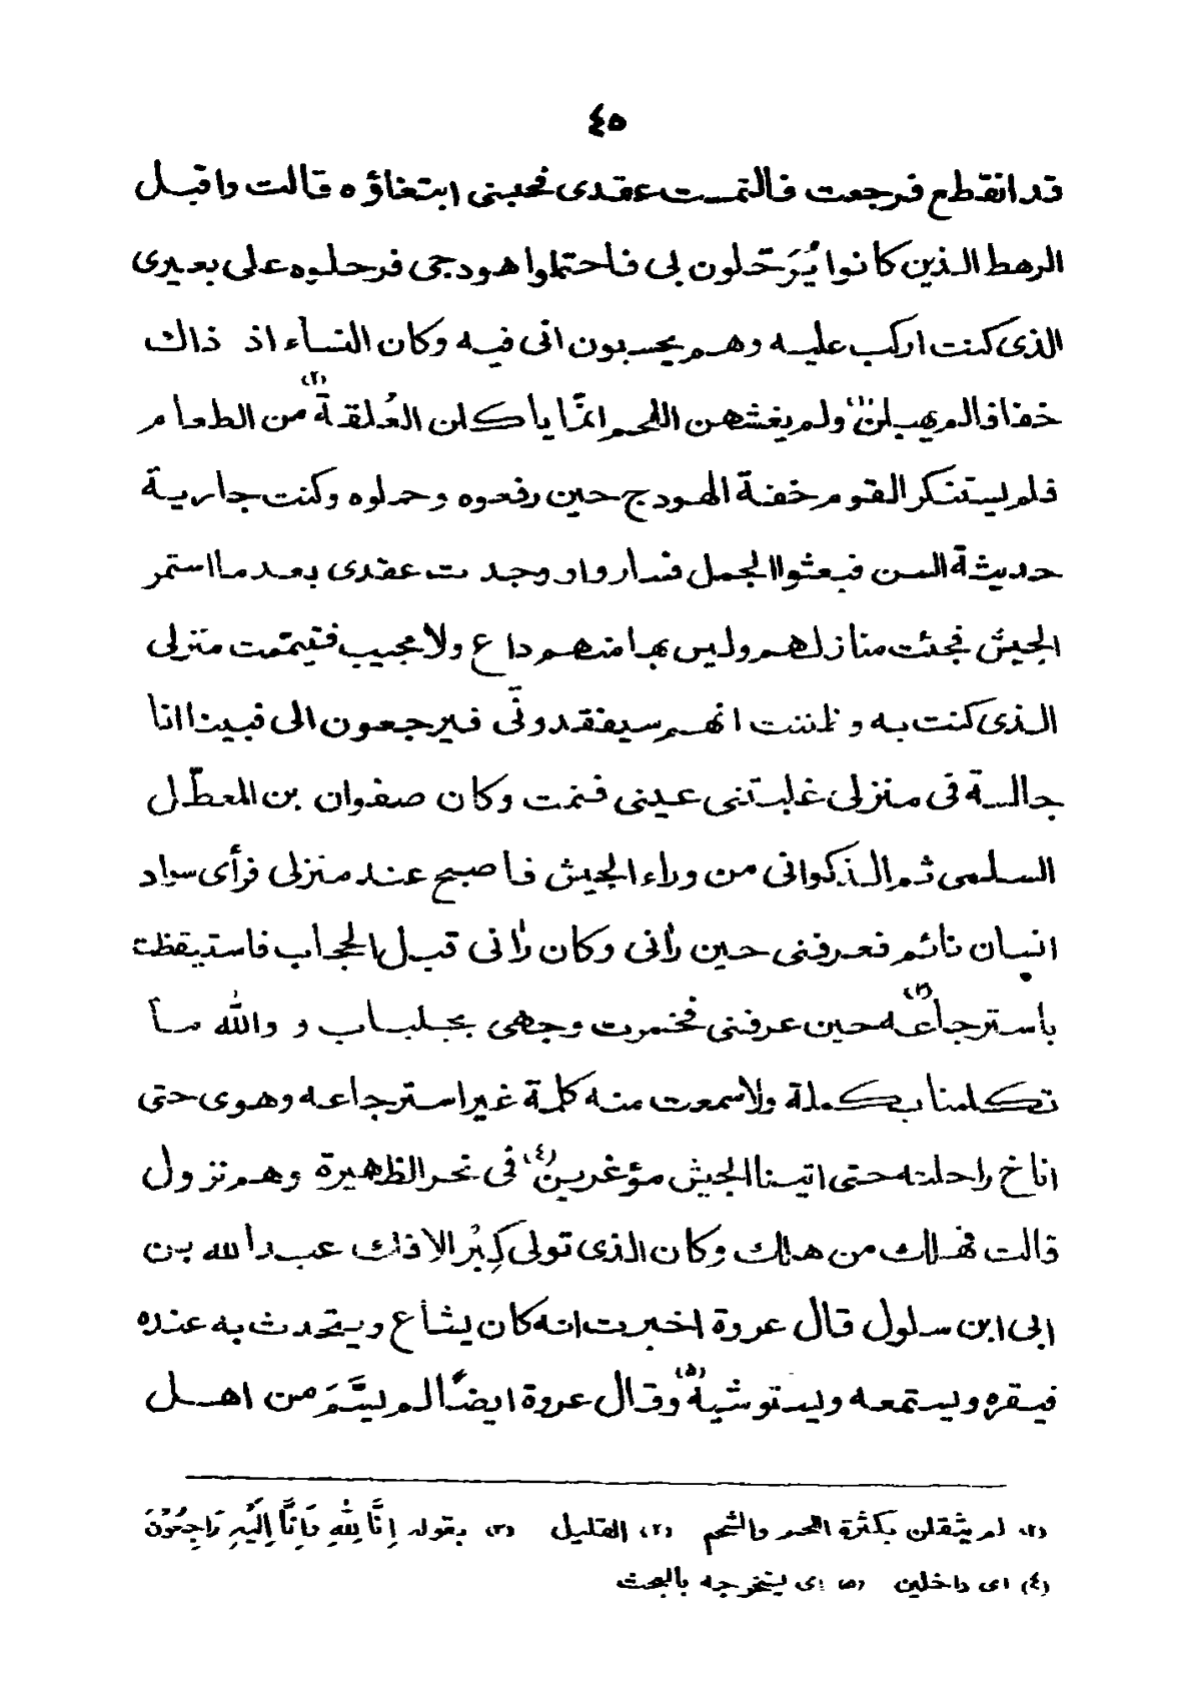 ٤٥
قد انقطع فرجعت فالتمست عقدى فحبسنى ابتغاؤه قالت واقبل
الرهط الذين كانوا يُرَحّلون بى فاحتملوا هودجى فرحلوه على بعيرى
الذى كنت اركب عليه وهم يحسبون انى فيه وكان النساء اذ ذاك
خفافا لم يهبلن(١) ولم يغشهن اللحم انمّا ياكلن العُلقة(٢) من الطعام
فلم يستنكر القوم خفة الهودج حين رفعوه وحملوه وكنت جارية
حديثة السن فبعثوا الجمل فساروا ووجدت عقدى بعد ما استمر
الجيش فجئت منازلهم وليس بها منهم داع ولا مجيب فتيممت منزلى
الذى كنت به وظننت انهم سيفقدونّى فيرجعون الى فبينا انا
جالسة فى منزلى غلبتنى عينى فنمت وكان صفوان بن المعطّل
السلمى ثم الذكوانى من وراء الجيش فاصبح عند منزلى فرأى سواد
انسان نائم فعرفنى حين رأنى وكان رأنى قبل الحجاب فاستيقظت
باسترجاعه(٣) حين عرفنى فخمرت وجهى بجلباب و والله ما
تكلمنا بكلمة ولا سمعت منه كلمة غير استرجاعه وهوى حتى
اناخ راحلته حتى اتينا الجيش مؤغرين(٤) فى نحر الظهيرة وهم نزول
قالت فهلك من هلك وكان الذى تولى كِبْر الافك عبد الله بن
ابى ابن سلول قال عروة اخبرت انه كان يشاع ويتحدث به عنده
فيقره ويستمعه ويستوشيه(٥) وقال عروة ايضًا لم يسَّمَ من اهل
(١) لم يثقلن بكثرة اللحم والشحم (٢) القليل (٣) بقوله اِنَّا لِلّٰهِ وَاِنَّا اِلَيْهِ رَاجِعُوْنَ
(٤) اى داخلين (٥) اى يستخرجه بالبحث